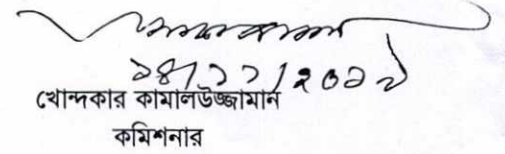 ১৪/১১/২০১২
খোন্দকার কামালউজ্জামান
কমিশনার